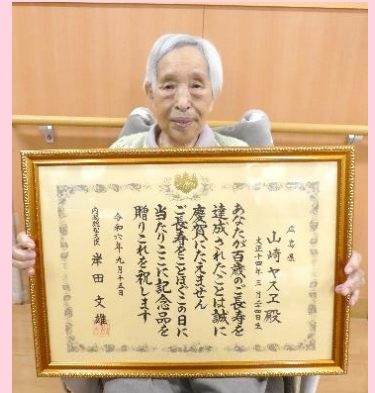 広島県
山崎ヤスヱ殿
大正十四年三月二四日生
あなたが百歳のご長寿を
達成されたことは誠に
慶賀にたえません
ご長寿をことほぐこの日に
当たりここに記念品を
贈りこれを祝します
令和六年九月十五日
内閣総理大臣 岸田文雄